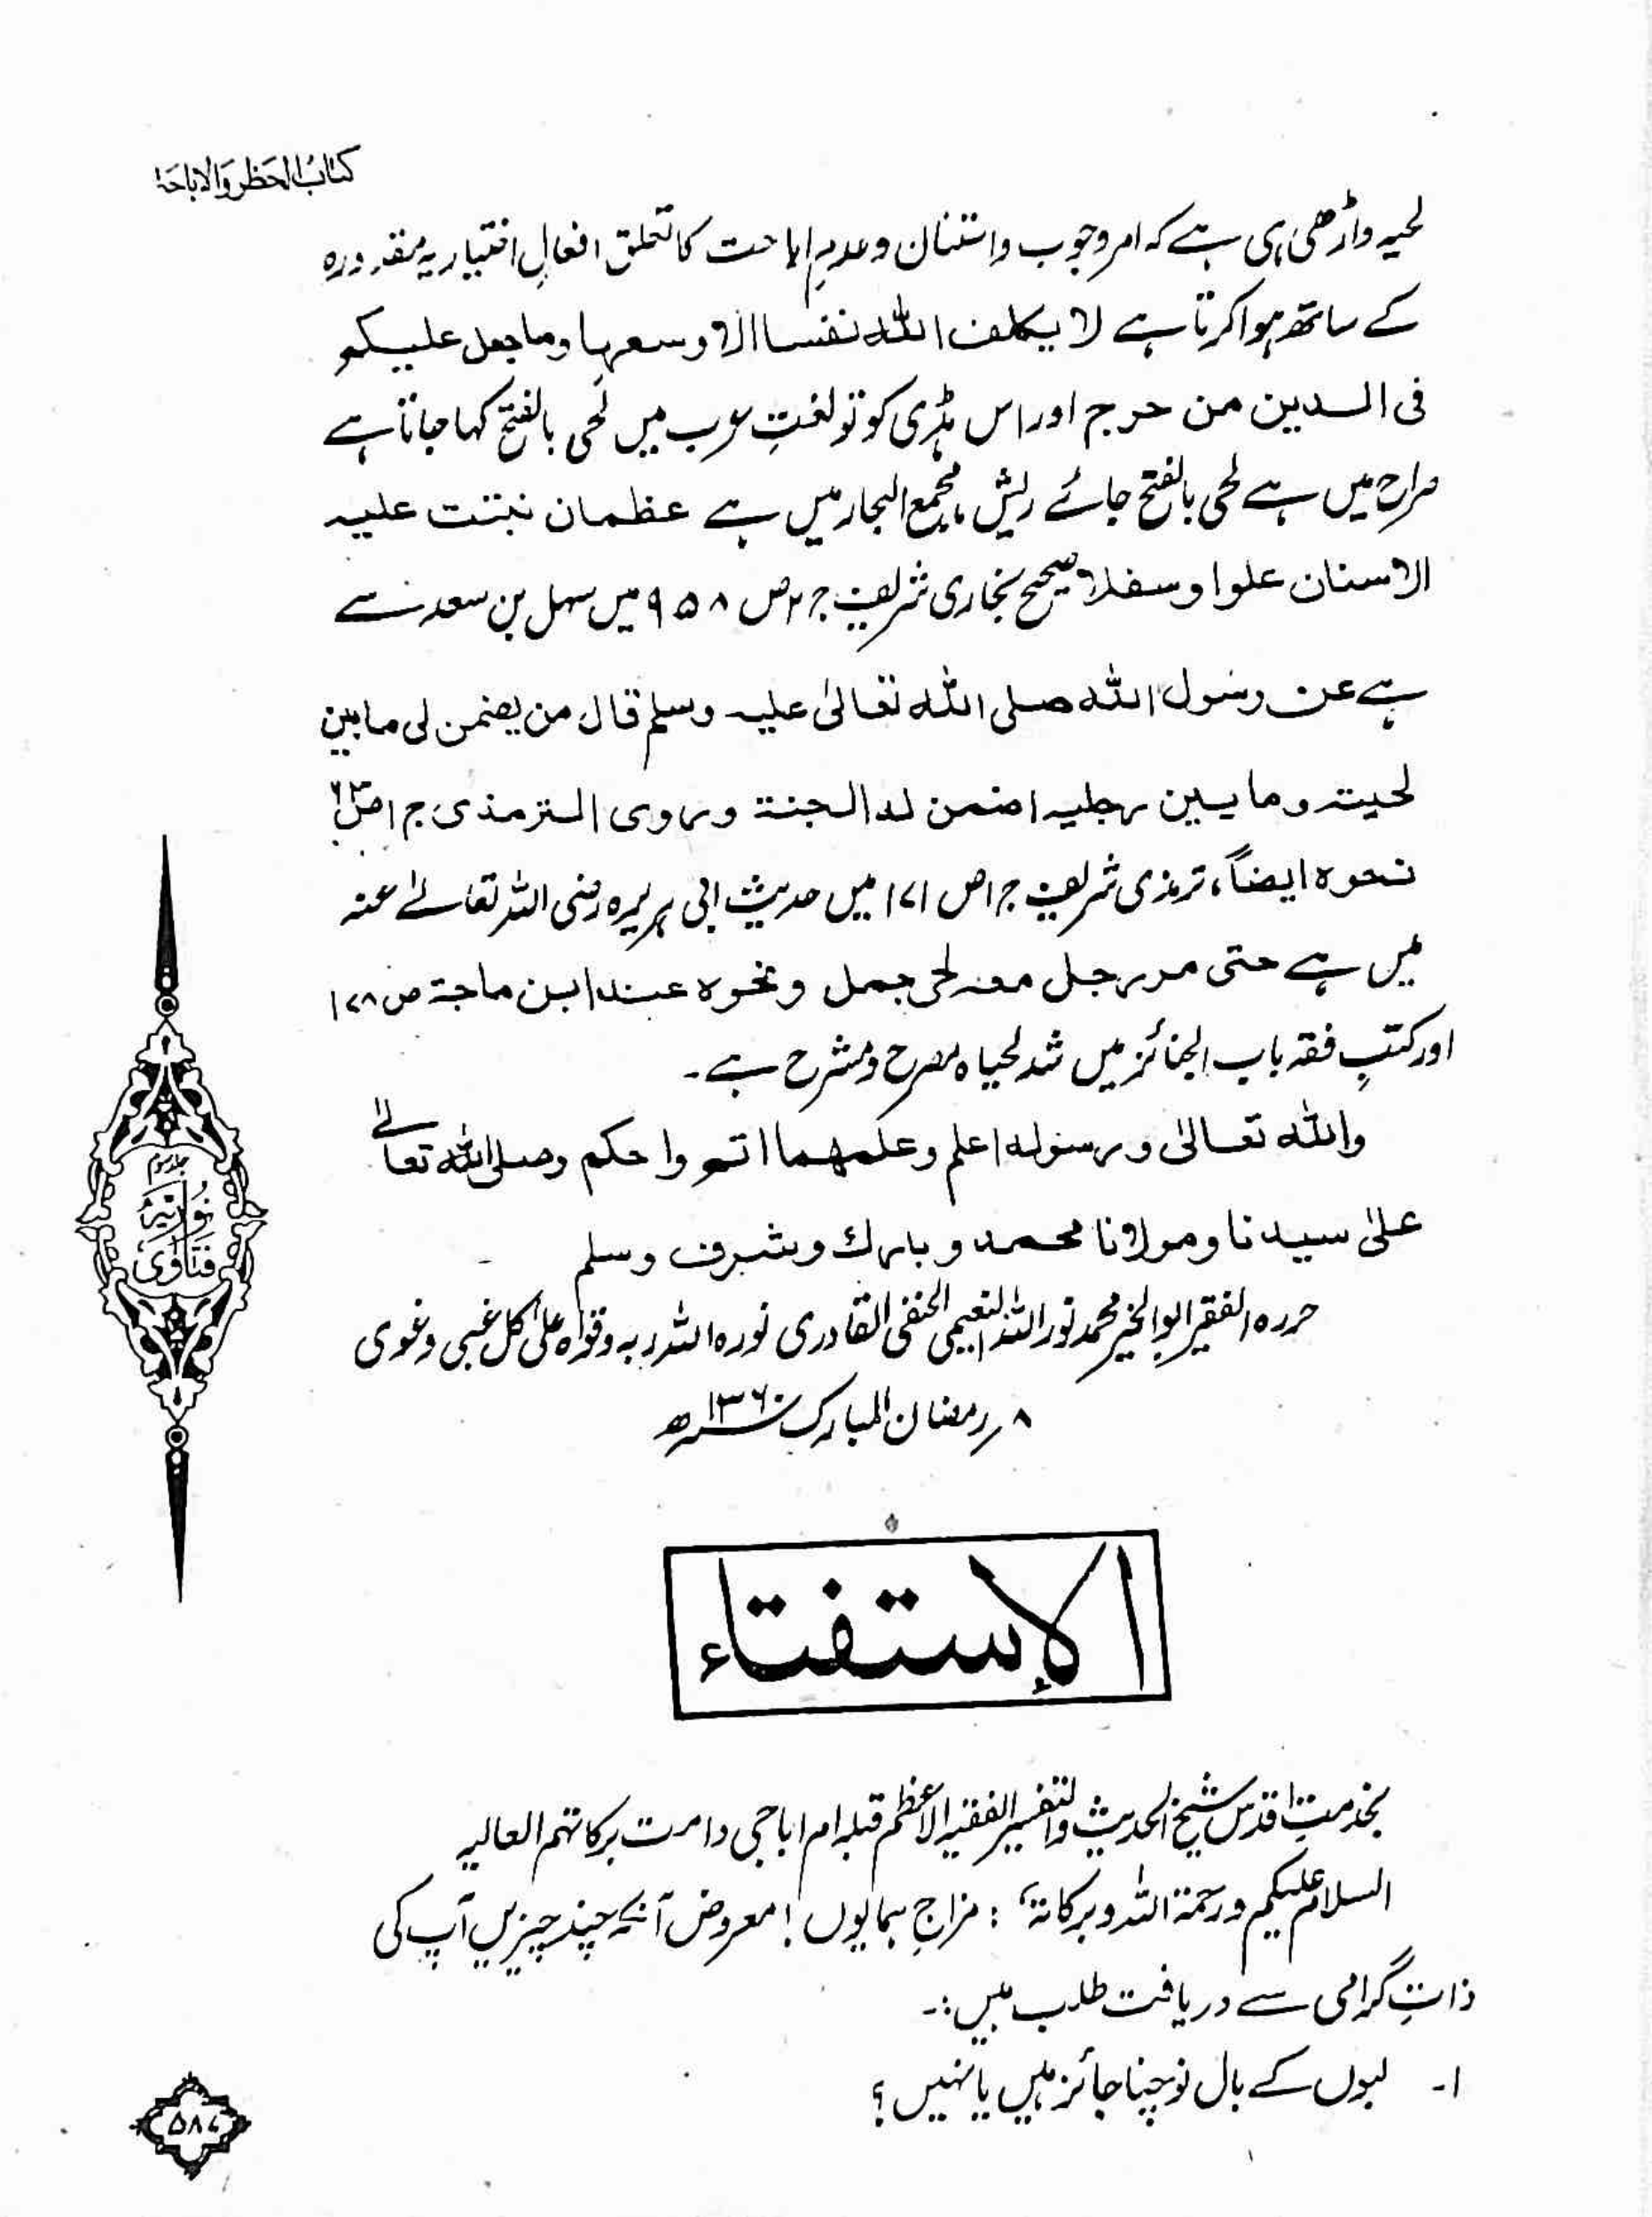 كتاب الحظر والاباحة
لحیہ داڑھی ہی ہے کہ امر وجوب واستنان وعدمِ اباحت کا تعلق افعالِ اختیاریہ مقدورہ
کے ساتھ ہوا کرتا ہے لا يكلف الله نفسا الا وسعها وما جعل عليكم
فى الدين من حرج اور اس ہڈی کو تو لغتِ عرب میں لَحی بالفتح کہا جاتا ہے
صراح میں ہے لحی بالفتح جائے ریش، مجمع البحار میں ہے عظمان نبتت عليه
الاسنان علوا وسفلا صحیح بخاری شریف ج ۲ ص ۹۵۸ میں سہل بن سعد سے
ہے عن رسول الله صلى الله تعالىٰ عليه وسلم قال من يضمن لى ما بين
لحيته وما بين رجليه اضمن له الجنة وروى الترمذى ج ا ص
نحوه ايضاً، ترمذی شریف ج ا ص ۱۷۱ میں حدیث ابی ہریرہ رضی اللہ تعالےٰ عنہ
میں ہے حتى مر رجل معه لحى جمل ونحوه عند ابن ماجة ص ۱۷۸
اور کتبِ فقہ باب الجنائز میں شد لحیاہ مصرح ومشرح ہے۔
والله تعالىٰ ورسوله اعلم وعلمهما اتم واحكم وصلى الله تعالےٰ
علىٰ سيدنا ومولانا محمد وبارك وشرف وسلم
حررہ الفقیر ابوالخیر محمد نور اللہ النعیمی الحنفی القادری نورہ اللہ ربہ وقواہ علیٰ کل غبی وغوی
۸؍ رمضان المبارک ۱۳۶۰ھ
الإستفتاء
بخدمتِ اقدس شیخ الحدیث والتفسیر الفقیہ الاعظم قبلہ ام اباجی دامت برکاتہم العالیہ
السلام علیکم ورحمۃ اللہ وبرکاتہ، : مزاجِ ہمایوں ! معروض آنکہ چند چیزیں آپ کی
ذاتِ گرامی سے دریافت طلب ہیں :۔
۱۔ لبوں کے بال نوچنا جائز ہیں یا نہیں ؟
جلد سوم
نُوریَہ
فتَاوٰی
۵۸۷